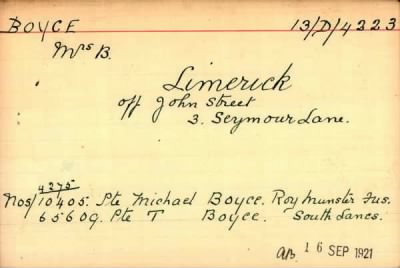 BOYCE 13/D/4223
Mrs B.
Limerick
off John Street
3. Seymour Lane.
4275
Nos/10405. Pte Michael Boyce. Roy Munster Fus.
65609. Pte T Boyce. South Lancs.
16 SEP 1921